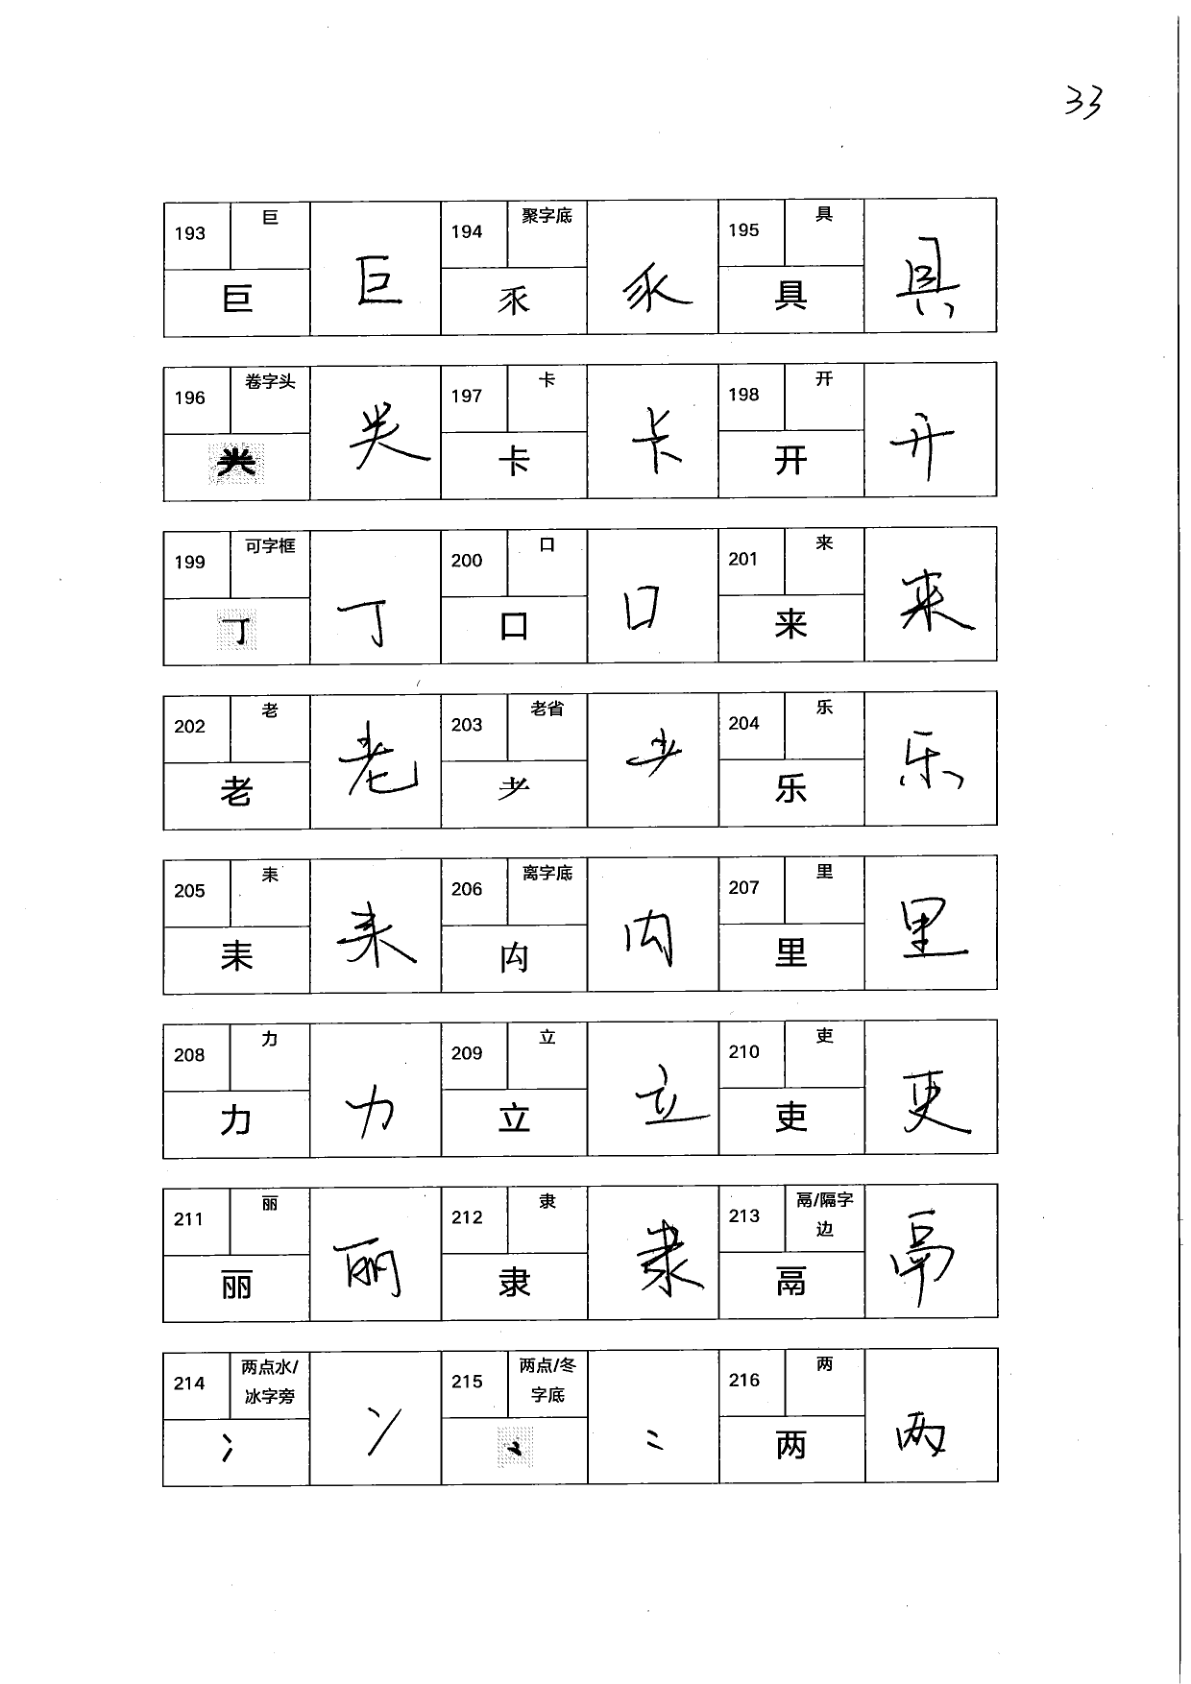 33
193 巨 巨 巨 194 聚字底 乑 乑 195 具 具 具
196 卷字头 龹 龹 197 卡 卡 卡 198 开 开 开
199 可字框 丁 丁 200 口 口 口 201 来 来 来
202 老 老 老 203 老省 耂 耂 204 乐 乐 乐
205 耒 耒 耒 206 离字底 禸 禸 207 里 里 里
208 力 力 力 209 立 立 立 210 吏 吏 吏
211 丽 丽 丽 212 隶 隶 隶 213 鬲/隔字边 鬲 鬲
214 两点水/冰字旁 冫 冫 215 两点/冬字底 ⺀ ⺀ 216 两 两 两